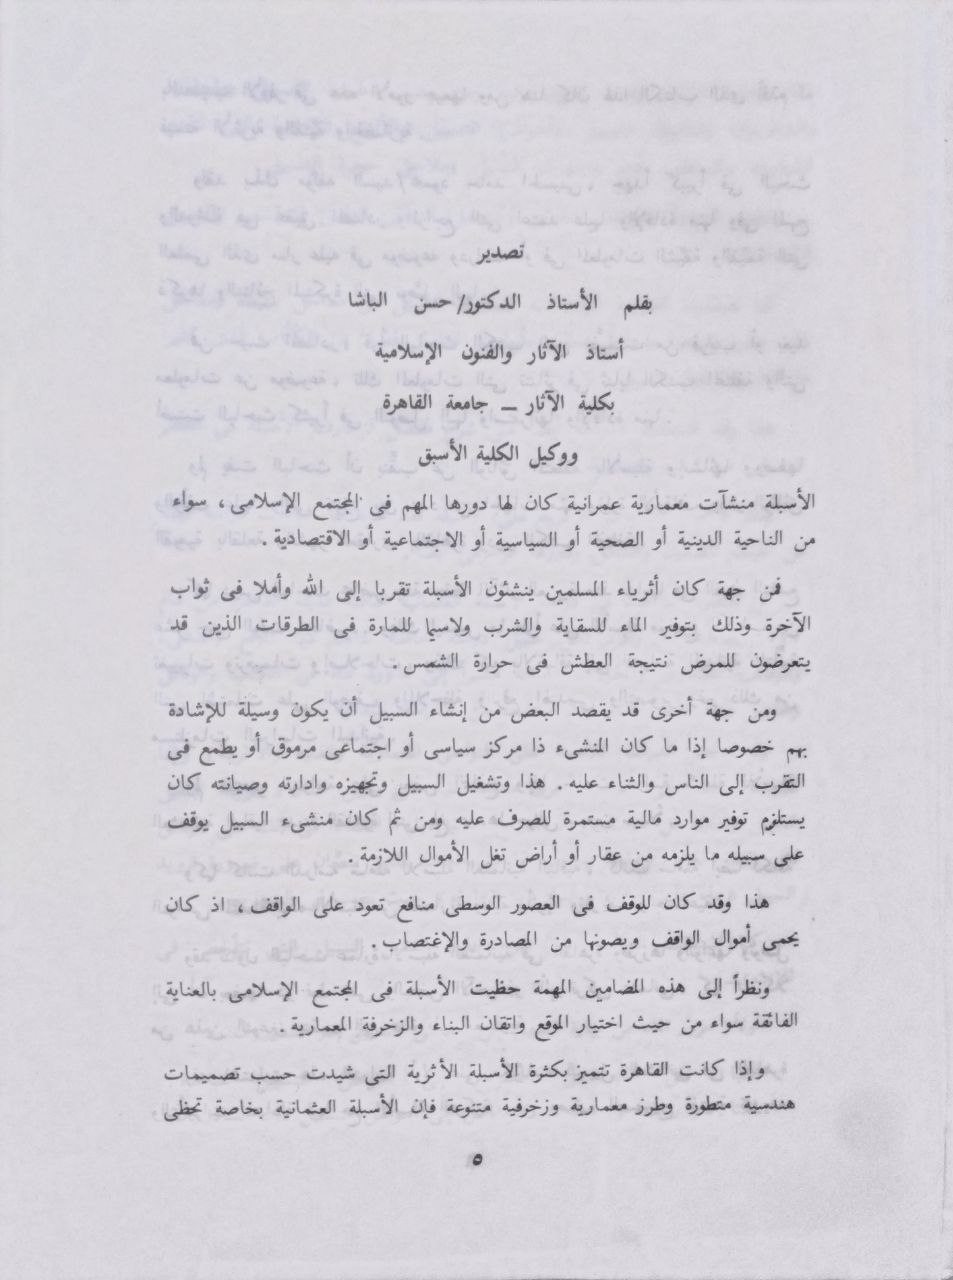 تصدير
بقلم الأستاذ الدكتور/ حسن الباشا
أستاذ الآثار والفنون الإسلامية
بكلية الآثار ــ جامعة القاهرة
ووكيل الكلية الأسبق
الأسبلة منشآت معمارية عمرانية كان لها دورها المهم فى المجتمع الإسلامى ، سواء
من الناحية الدينية أو الصحية أو السياسية أو الاجتماعية أو الاقتصادية .
فمن جهة كان أثرياء المسلمين ينشئون الأسبلة تقربا إلى الله وأملا فى ثواب
الآخرة وذلك بتوفير الماء للسقاية والشرب ولاسيما للمارة فى الطرقات الذين قد
يتعرضون للمرض نتيجة العطش فى حرارة الشمس .
ومن جهة أخرى قد يقصد البعض من إنشاء السبيل أن يكون وسيلة للإشادة
بهم خصوصا إذا ما كان المنشىء ذا مركز سياسى أو اجتماعى مرموق أو يطمع فى
التقرب إلى الناس والثناء عليه . هذا وتشغيل السبيل وتجهيزه وادارته وصيانته كان
يستلزم توفير موارد مالية مستمرة للصرف عليه ومن ثم كان منشىء السبيل يوقف
على سبيله ما يلزمه من عقار أو أراض تغل الأموال اللازمة .
هذا وقد كان للوقف فى العصور الوسطى منافع تعود على الواقف ، اذ كان
يحمى أموال الواقف ويصونها من المصادرة والإغتصاب .
ونظراً إلى هذه المضامين المهمة حظيت الأسبلة فى المجتمع الإسلامى بالعناية
الفائقة سواء من حيث اختيار الموقع واتقان البناء والزخرفة المعمارية .
وإذا كانت القاهرة تتميز بكثرة الأسبلة الأثرية التى شيدت حسب تصميمات
هندسية متطورة وطرز معمارية وزخرفية متنوعة فإن الأسبلة العثمانية بخاصة تحظى
٥